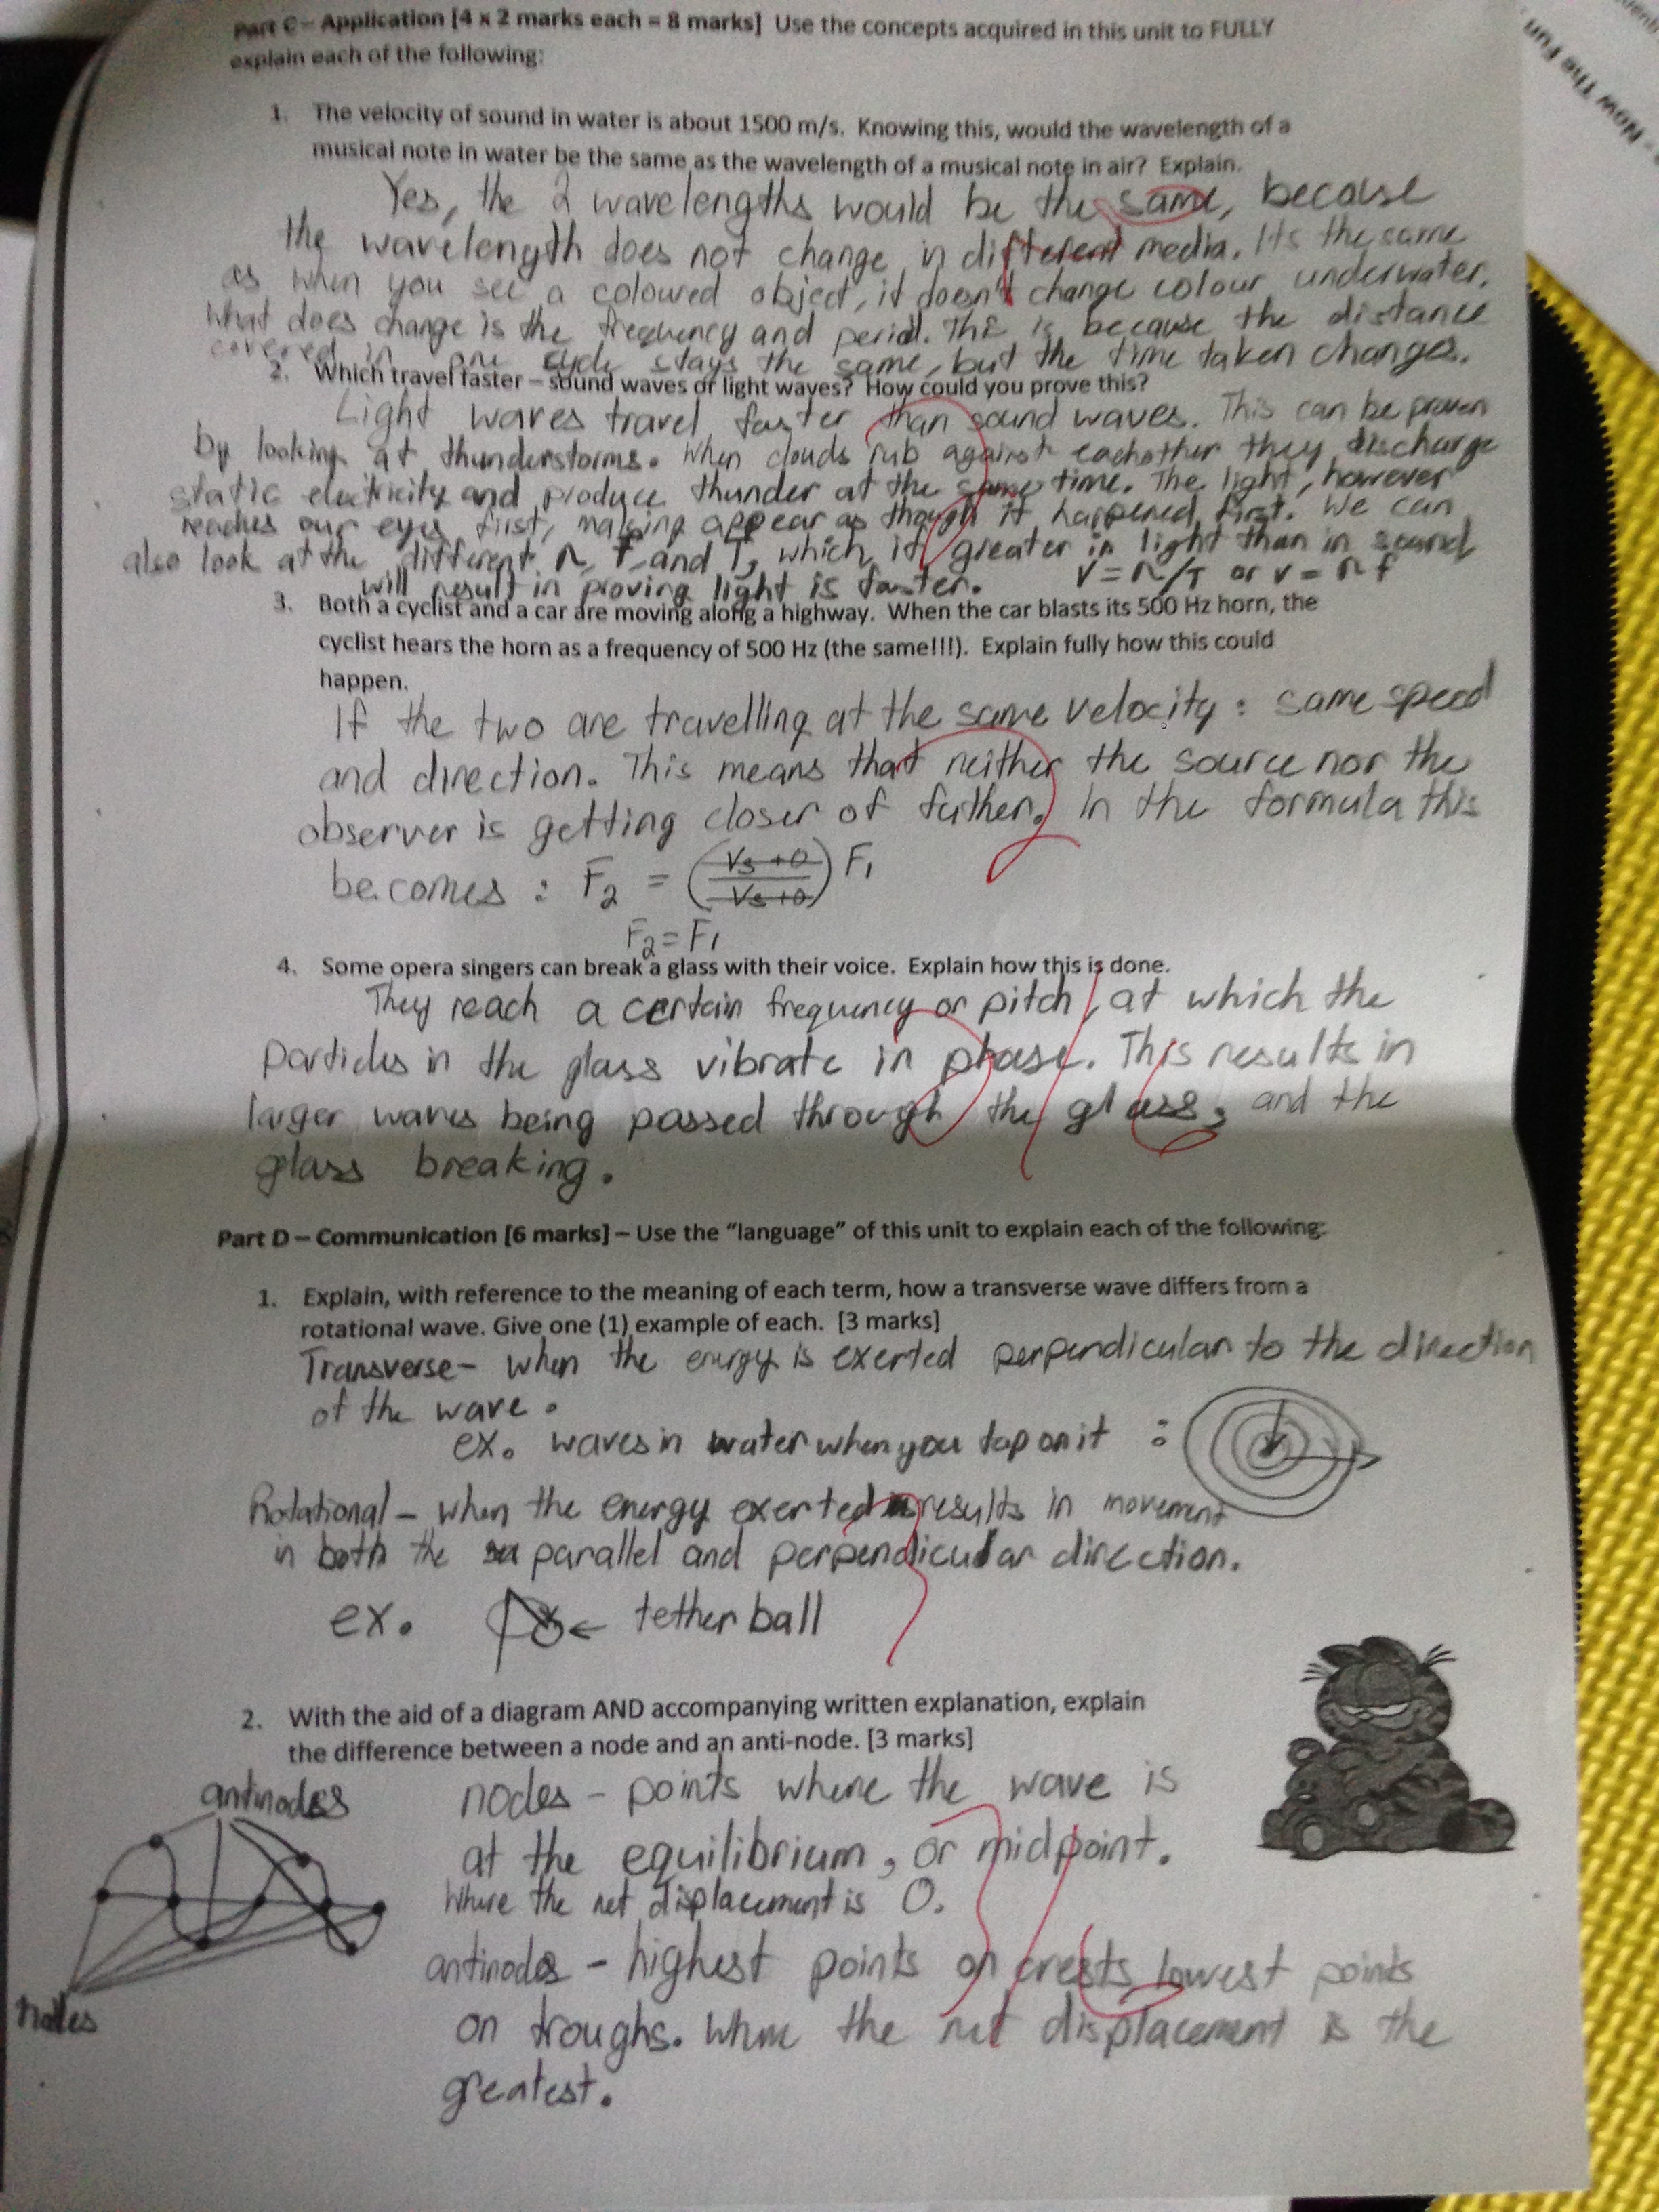 Part C – Application [4 x 2 marks each = 8 marks] Use the concepts acquired in this unit to FULLY
explain each of the following:
1. The velocity of sound in water is about 1500 m/s. Knowing this, would the wavelength of a
musical note in water be the same as the wavelength of a musical note in air? Explain.
Yes, the 2 wavelengths would be the same, because
the wavelength does not change in different media. Its the same
as when you see a coloured object, it doesn't change colour underwater.
What does change is the frequency and period. This is because the distance
covered in one cycle stays the same, but the time taken changes.
2. Which travel faster – sound waves or light waves? How could you prove this?
Light waves travel faster than sound waves. This can be proven
by looking at thunderstorms. When clouds rub against eachother they discharge
static electricity and produce thunder at the same time. The light, however
reaches our eyes first, making appear as though it happened first. We can
also look at the different λ, f, and T, which if greater in light than in sound,
will result in proving light is faster. v = λ/T or v = λf
3. Both a cyclist and a car are moving along a highway. When the car blasts its 500 Hz horn, the
cyclist hears the horn as a frequency of 500 Hz (the same!!!). Explain fully how this could
happen.
If the two are travelling at the same velocity: same speed
and direction. This means that neither the source nor the
observer is getting closer of futher. In the formula this
becomes: F2 = (Vs+0/Vs+0) F1
F2 = F1
4. Some opera singers can break a glass with their voice. Explain how this is done.
They reach a certain frequency or pitch, at which the
particles in the glass vibrate in phase. This results in
larger waves being passed through the glass, and the
glass breaking.
Part D – Communication [6 marks] – Use the "language" of this unit to explain each of the following:
1. Explain, with reference to the meaning of each term, how a transverse wave differs from a
rotational wave. Give one (1) example of each. [3 marks]
Transverse - when the energy is exerted perpendicular to the direction
of the wave.
ex. waves in water when you tap on it :
Rotational - when the energy exerted results in movement
in both the parallel and perpendicular direction.
ex. ← tether ball
2. With the aid of a diagram AND accompanying written explanation, explain
the difference between a node and an anti-node. [3 marks]
antinodes
nodes - points where the wave is
at the equilibrium, or midpoint.
Where the net displacement is 0.
antinodes - highest points on crests, lowest points
nodes
on troughs. Where the net displacement is the
greatest.